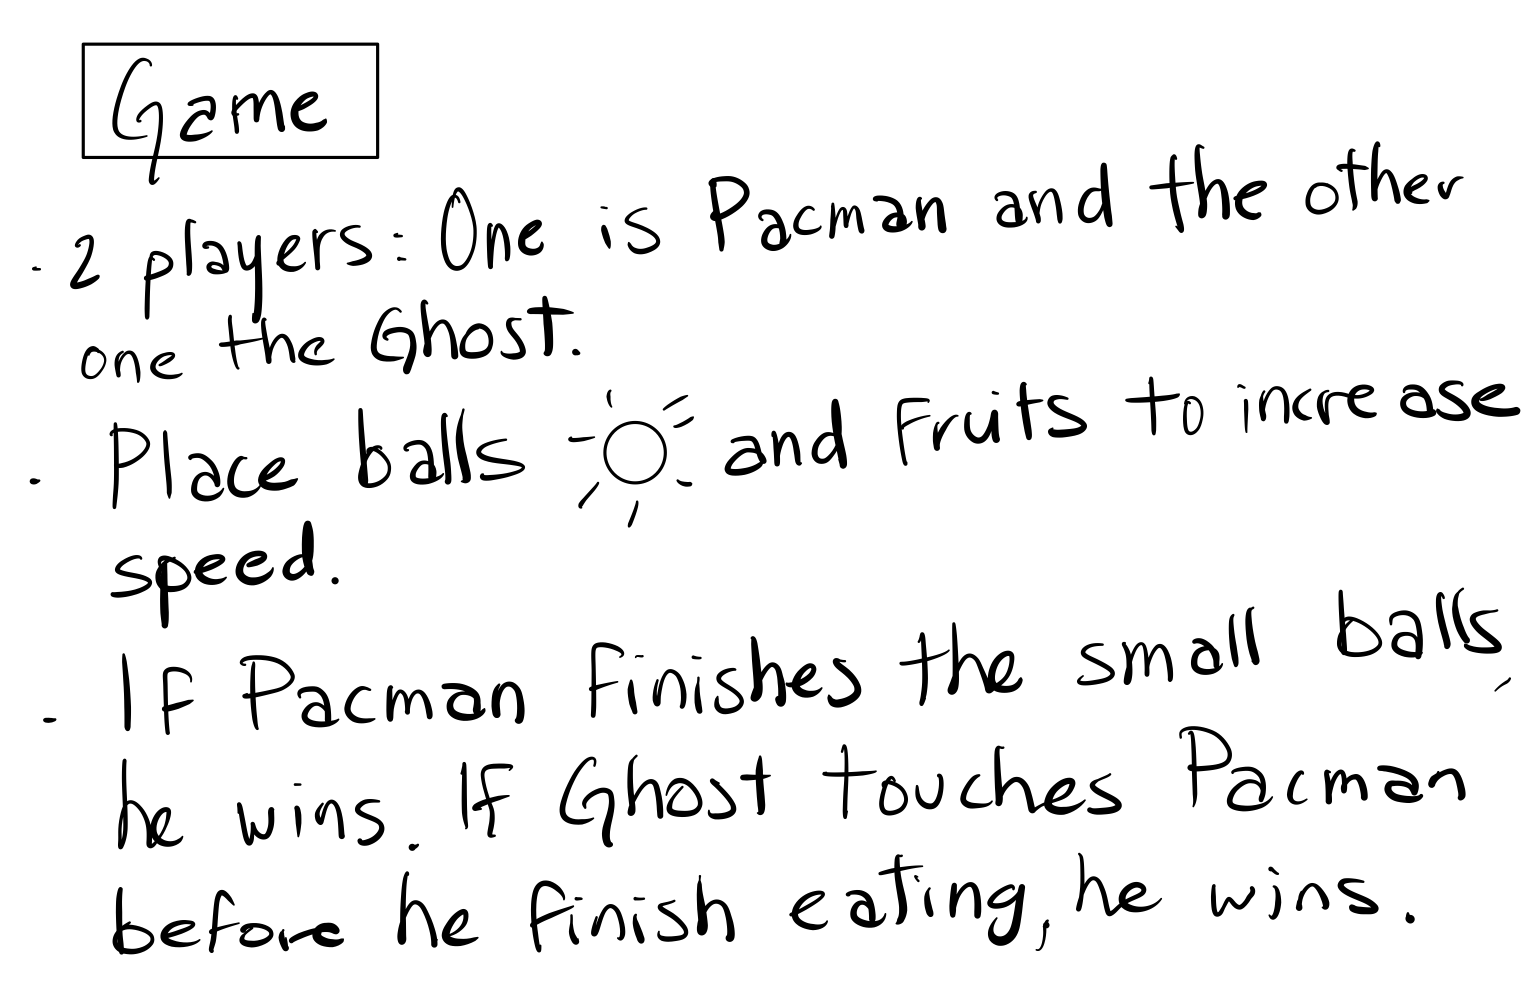 Game
· 2 players: One is Pacman and the other
one the Ghost.
· Place balls and Fruits to increase
speed.
- If Pacman Finishes the small balls,
he wins. If Ghost touches Pacman
before he finish eating, he wins.